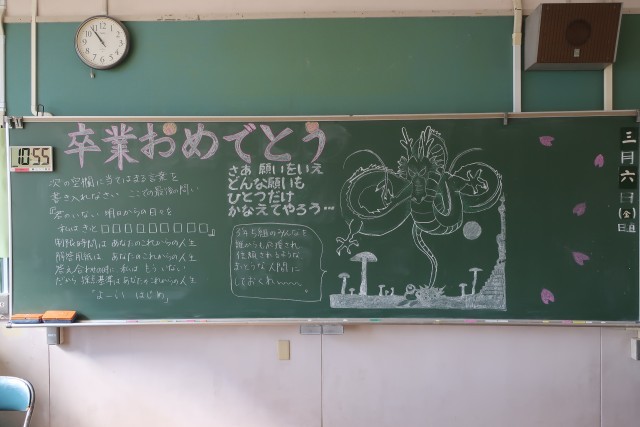 10:55
卒業おめでとう
次の空欄に当てはまる言葉を
書き入れなさい ここでの最後の問い
『君のいない 明日からの日々を
私はきっと□□□□□□□□□』
制限時間は あなたのこれからの人生
解答用紙は あなたのこれからの人生
答え合わせの時に 私は もういない
だから 採点基準はあなたのこれからの人生
「よーい はじめ」
さあ 願いをいえ
どんな願いも
ひとつだけ
かなえてやろう…
3年5組のみんなを
誰からも応援され
信頼されるような
人間に
しておくれ
三月六日(金)